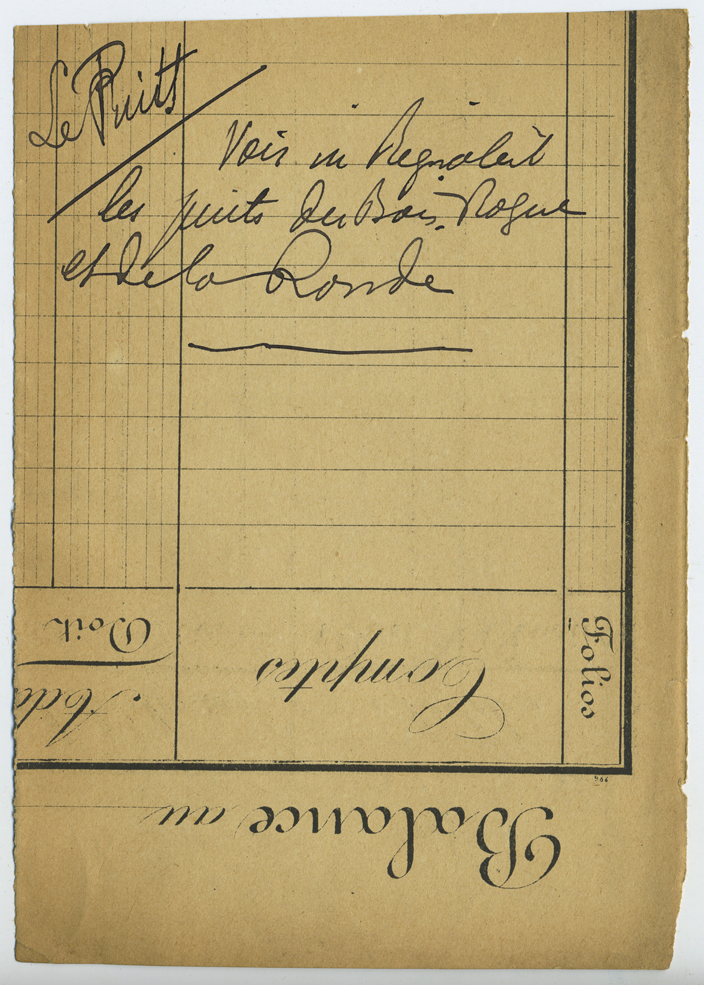 Le Puits
Voir in Regnoleit
les puits du Bois Rogue
et de la Ronde
Folios
Comptes
Doit
Balance au